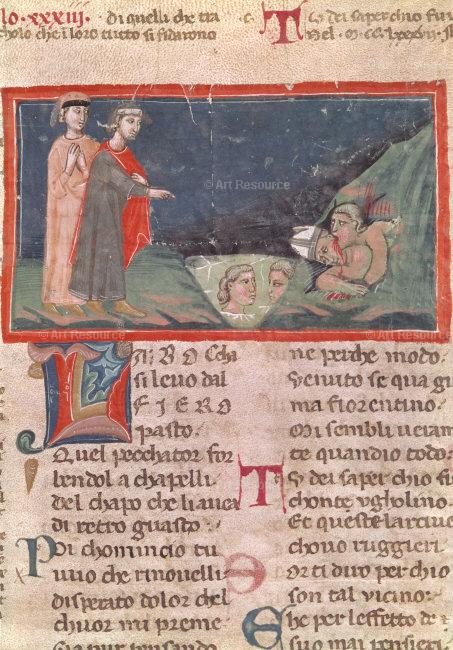 lo·xxxiii· di quelli che tra
cholo che i loro tutto si fidarono
Tu dei saper chio fu
Nel·m·cc·lxxxvii·
© Art Resource
© Art Resource
© Art Resource
Art Resource
© Art Resource
LA BOCCha
si levo dal
FIERO
pasto·
Quel pecchator for
bendol a chapelli
del chapo che
di retro guasto·
Poi chomincio tu
vuio che rinovelli
disperato dolor chel
chuor mi preme
Gia pur pensando
ne perche modo·
venuto se qua giu
ma fiorentino·
Mi sembli veram
te quandio todo·
Tu dei saper chio fu
chonte ugholino·
Et queste larcive
chovo ruggieri·
Or ti diro perchio
son tal vicino·
Che per leffetto de
suo mai pensieri